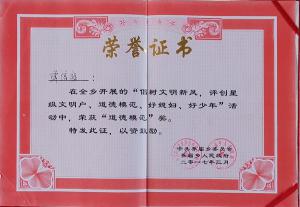 荣誉证书
在全乡开展的“倡树文明新风，评创星
级文明户、道德模范、好媳妇、好少年”活
动中，荣获“道德模范”奖。
特发此证，以资鼓励。
乡人民政府
二〇一七年三月